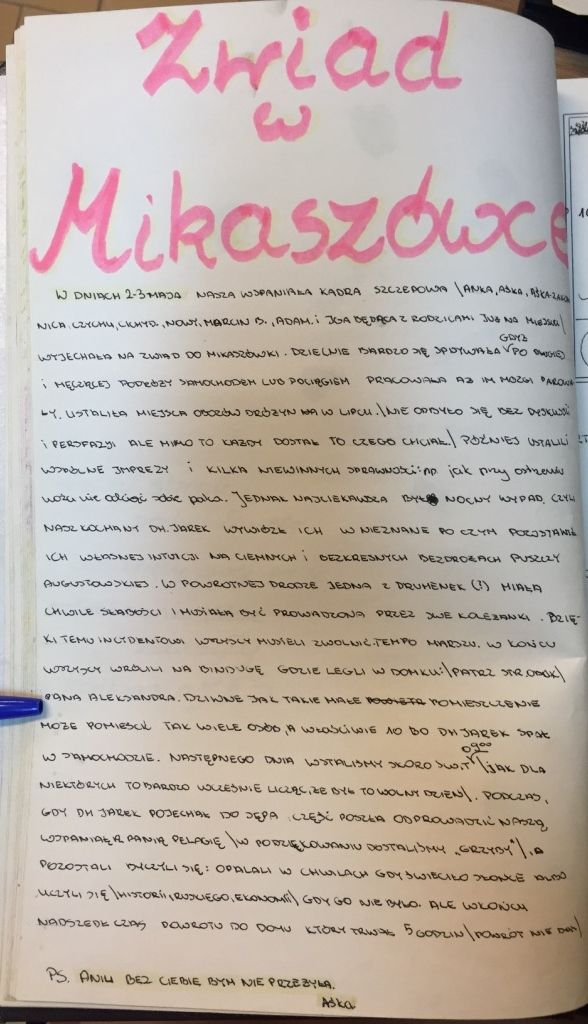 Zwiad
w
Mikaszówce
W DNIACH 2-3 MAJA NASZA WSPANIAŁA KADRA SZCZEPOWA /ANKA, AŚKA, AŚKA
NICA, CZYCHU, NOWY, MARCIN B., ADAM, i IGA BĘDĄCA Z RODZICAMI JUŻ NA MIEJSCU/
GDYŻ
WYJECHAŁA NA ZWIAD DO MIKASZÓWKI. DZIELNIE BARDZO SIĘ SPISYWAŁA PO DŁUGIEJ
I MĘCZĄCEJ PODRÓŻY SAMOCHODEM LUB POCIĄGIEM PRACOWAŁA AŻ IM MÓZGI PAROWA
ŁY. USTALIŁA MIEJSCA OBOZÓW DRÓŻYN NA W LIPCU. /NIE ODBYŁO SIĘ BEZ DYSKUSJI
I PERSFAZJI ALE MIMO TO KAŻDY DOSTAŁ TO CZEGO CHCIAŁ/ PÓŹNIEJ USTALILI
WSPÓLNE IMPREZY I KILKA NIEWINNYCH SPRAWNOŚCI: np. jak przy ostrzeniu
noża nie obciąć sobie palca. JEDNAK NAJCIEKAWSZA BYŁ NOCNY WYPAD, CZYLI
NASZ KOCHANY DH. JAREK WYWIÓZŁ ICH W NIEZNANE PO CZYM POZOSTAWIŁ
ICH WŁASNEJ INTUICJI NA CIEMNYCH I BEZKRESNYCH BEZDROŻACH PUSZCZY
AUGUSTOWSKIEJ. W POWROTNEJ DRODZE JEDNA Z DRUHENEK (!) MIAŁA
CHWILE SŁABOŚCI I MUSIAŁA BYĆ PROWADZONA PRZEZ DWIE KOLEŻANKI. DZIĘ-
KI TEMU INCYDENTOWI WSZYSCY MUSIELI ZWOLNIĆ TEMPO MARSZU. W KOŃCU
WSZYSCY WRÓCILI NA BINDUGĘ GDZIE LEGLI W DOMKU: /PATRZ STR. OBOK/
PANA ALEKSANDRA. DZIWNE JAK TAKIE MAŁE POMIESZCZENIE
MOŻE POMIEŚCIĆ TAK WIELE OSÓB, A WŁAŚCIWIE 10 BO DH JAREK SPAŁ
W SAMOCHODZIE. NASTĘPNEGO DNIA WSTALIŚMY SKORO ŚWIT /JAK DLA
O 9⁰⁰
NIEKTÓRYCH TO BARDZO WCZEŚNIE LICZĄC, ŻE BYŁ TO WOLNY DZIEŃ/. PODCZAS,
GDY DH JAREK POJECHAŁ DO SĘPA, CZĘŚĆ POSZŁA ODPROWADZIĆ NASZĄ
WSPANIAŁĄ PANIĄ PELAGIĘ /W PODZIĘKOWANIU DOSTALIŚMY „GRZYBY"/, A
POZOSTALI BYCZYLI SIĘ: OPALALI W CHWILACH GDY ŚWIECIŁO SŁOŃCE ALBO
UCZYLI SIĘ /HISTORII, RUSKIEGO, EKONOMII/ GDY GO NIE BYŁO. ALE W KOŃCU
NADSZEDŁ CZAS POWROTU DO DOMU KTÓRY TRWAŁ 5 GODZIN /POWRÓT NIE DOM/
PS. ANIU BEZ CIEBIE BYM NIE PRZEŻYŁA.
AŚKA